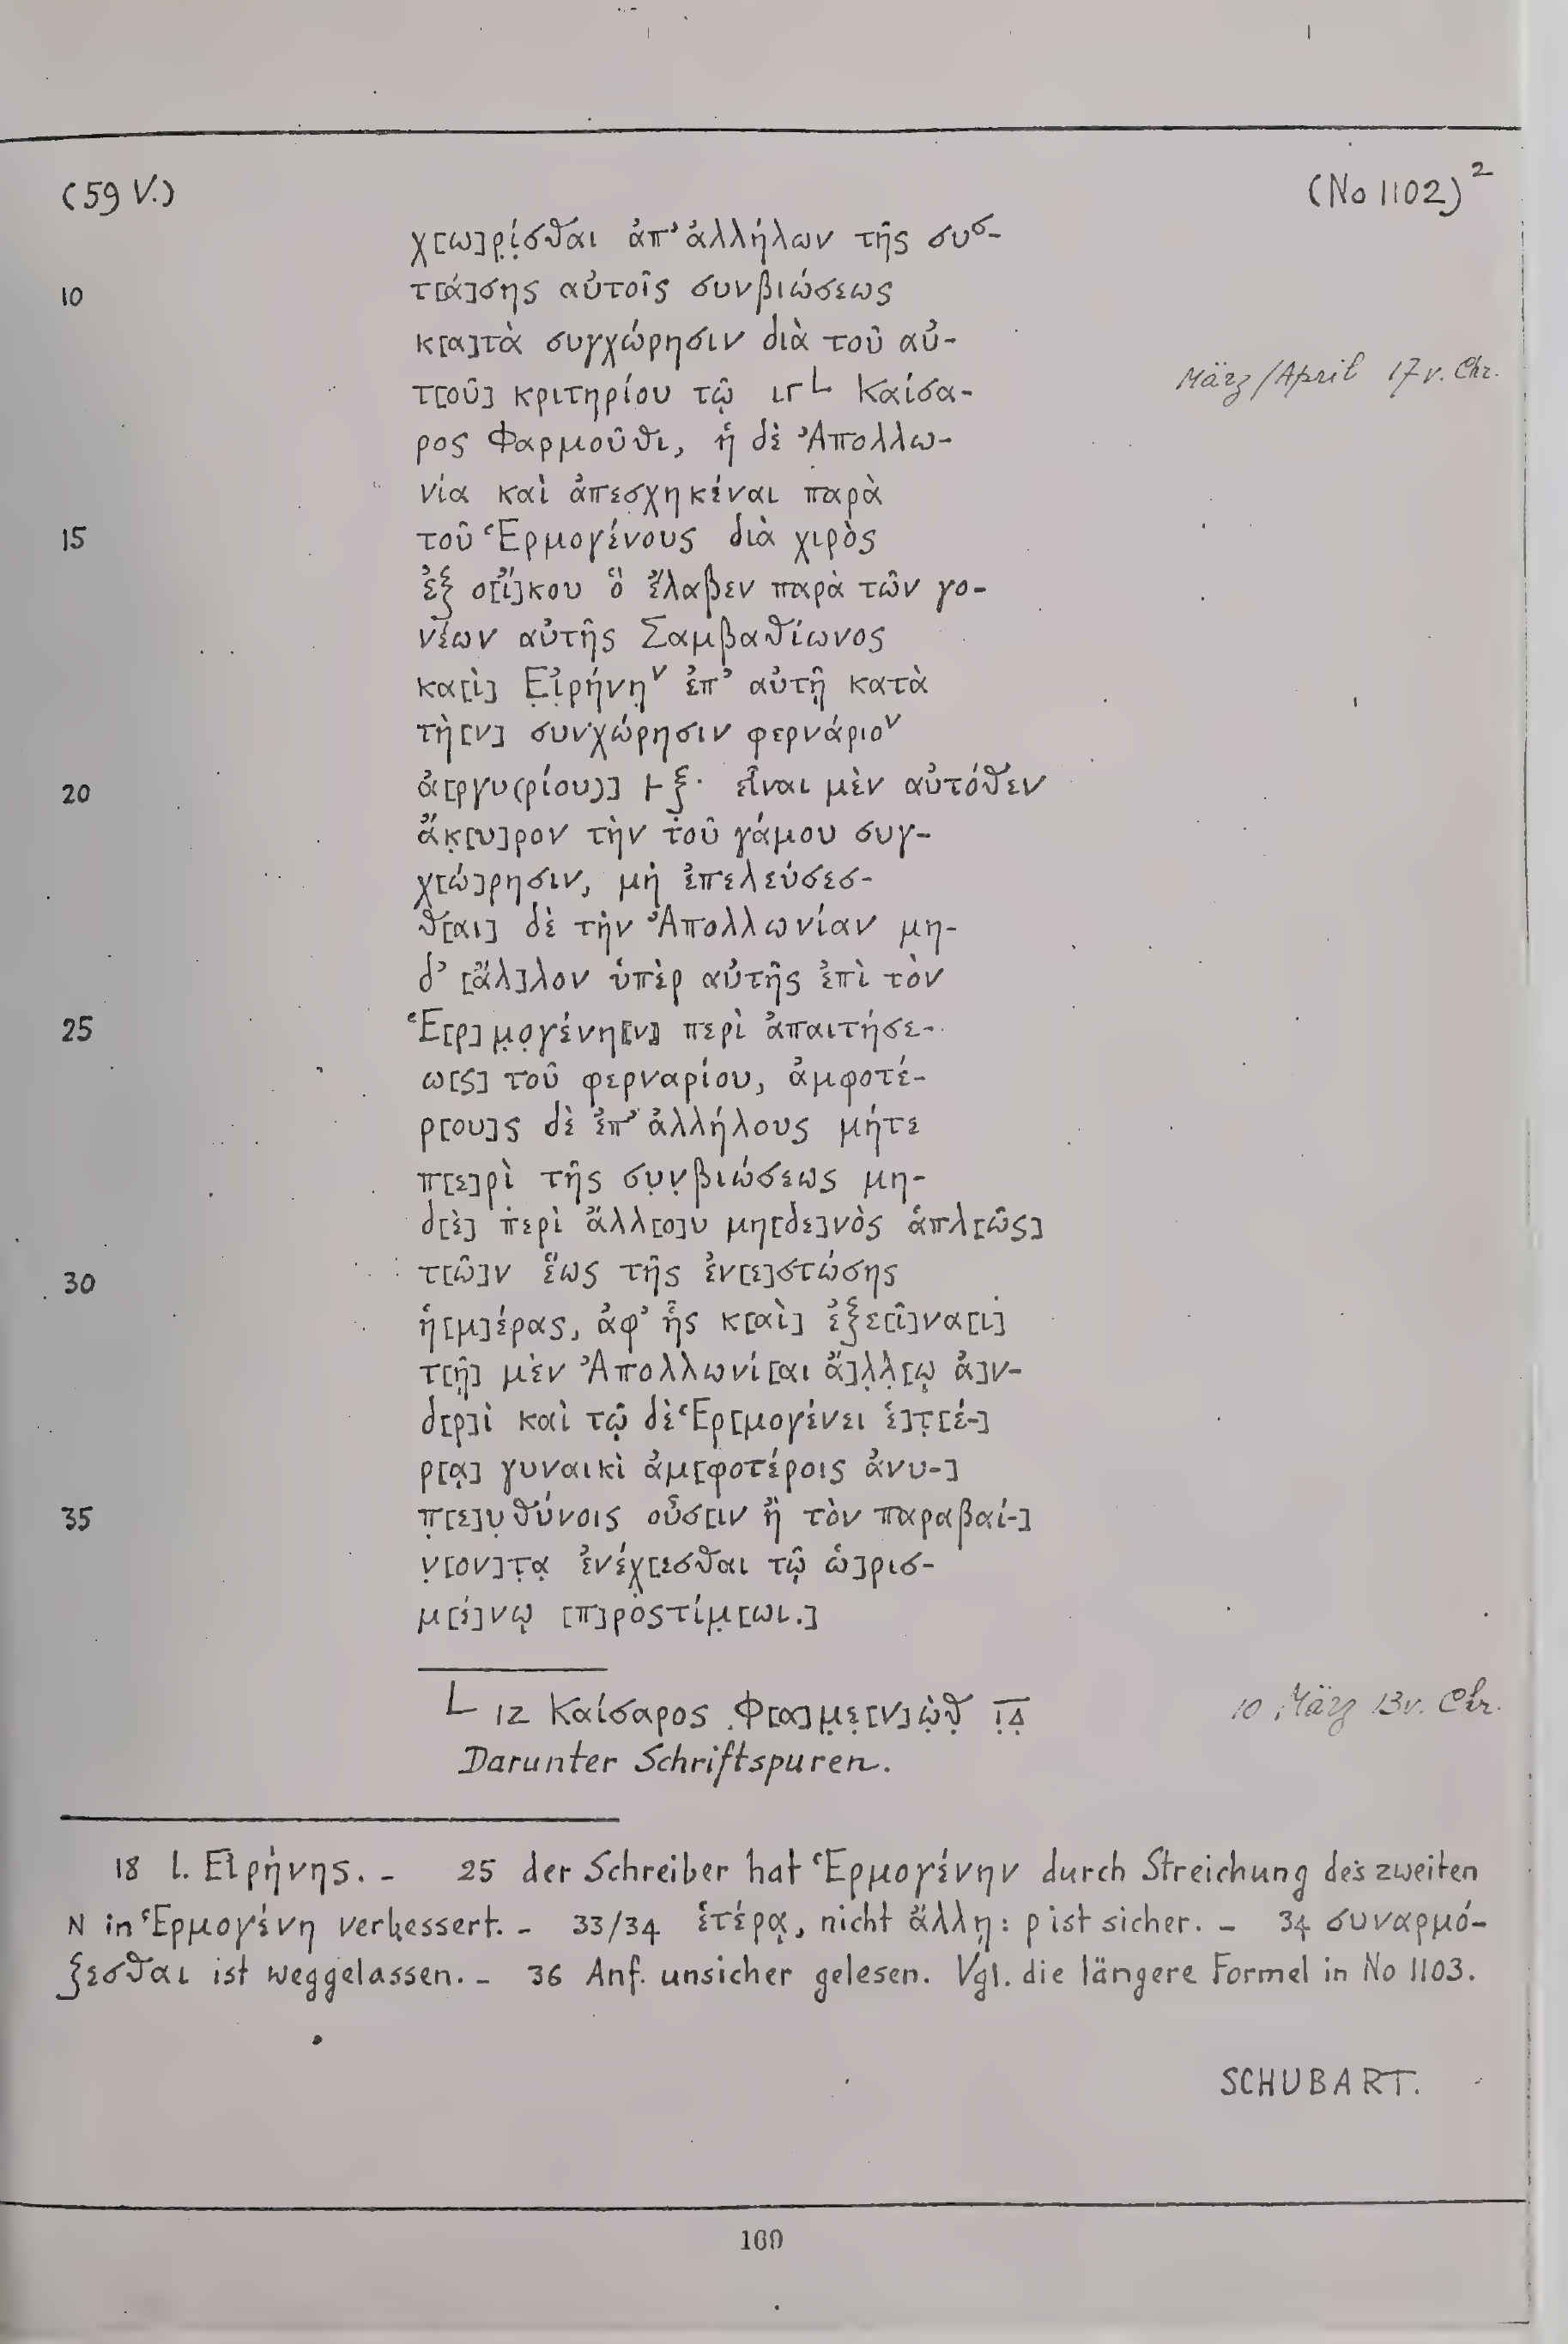 (59 V.) (No 1102)²
χ[ω]ρ̣ί̣σθαι ἀπ' ἀλλήλων τῆς συσ-
10 τ[ά]σης αὐτοῖς συνβιώσεως
κ[α]τὰ συγχώρησιν διὰ τοῦ αὐ-
τ[οῦ] κριτηρίου τῷ ιγ L Καίσα- März/April 17 v. Chr.
ρος Φαρμοῦθι, ἡ δὲ Ἀπολλω-
νία καὶ ἀπεσχηκέναι παρὰ
15 τοῦ Ἑρμογένους διὰ χιρὸς
ἐξ ο[ἴ]κου ὃ ἔλαβεν παρὰ τῶν γο-
νέων αὐτῆς Σαμβαθίωνος
κα[ὶ] Ε̣ἰ̣ρήνην ἐπ' αὐτῇ κατὰ
τὴ[ν] συνχώρησιν φερνάριον
20 ἀ[ργυ(ρίου)] ⊢ ξ· εἶναι μὲν αὐτόθεν
ἄκ̣[υ]ρον τὴν τοῦ γάμου συγ-
χ[ώ]ρησιν, μὴ ἐπελεύσεσ-
θ[αι] δὲ τὴν Ἀπολλωνίαν μη-
δ' [ἄλ]λον ὑπὲρ αὐτῆς ἐπὶ τὸν
25 Ἑ[ρ]μ̣ο̣γένη⟦ν⟧ περὶ ἀπαιτήσε-
ω[ς] τοῦ φερναρίου, ἀμφοτέ-
ρ[ου]ς δὲ ἐπ' ἀλλήλους μήτε
π[ε]ρὶ τῆς συ̣ν̣βιώσεως μη-
δ[ὲ] περὶ ἄλλ[ο]υ μη[δε]νὸς ἁπλ[ῶς]
30 τ[ῶ]ν ἕως τῆς ἐν[ε]στώσης
ἡ[μ]έρας, ἀφ' ἧς κ[αὶ] ἐξε[ῖ]να[ι]
τ[ῇ] μὲν Ἀπολλωνί[αι ἄ]λ̣λ̣[ῳ ἀ]ν-
δ[ρ]ὶ καὶ τῷ δὲ Ἑρ[μογένει ἑ]τ̣[έ-]
ρ[ᾳ] γυναικὶ ἀμ[φοτέροις ἀνυ-]
35 π̣[ε]υ̣θύνοις οὖσ[ιν ἢ τὸν παραβαί-]
ν̣[ον]τ̣α̣ ἐνέχ̣[εσθαι τῷ ὡ]ρισ-
μ[έ]νῳ [π]ροστίμ̣[ωι.]
L ΙΖ Καίσαρος Φ[α]μ̣ε̣[ν]ὼ̣θ̣ Ι̣Δ̣ 10 März 13 v. Chr.
Darunter Schriftspuren.
18 l. Εἰρήνης. – 25 der Schreiber hat Ἑρμογένην durch Streichung des zweiten
N in Ἑρμογένη verbessert. – 33/34 ἑτέρᾳ, nicht ἄλλῃ: ρ ist sicher. – 34 συναρμό-
ζεσθαι ist weggelassen. – 36 Anf. unsicher gelesen. Vgl. die längere Formel in No 1103.
SCHUBART.
160